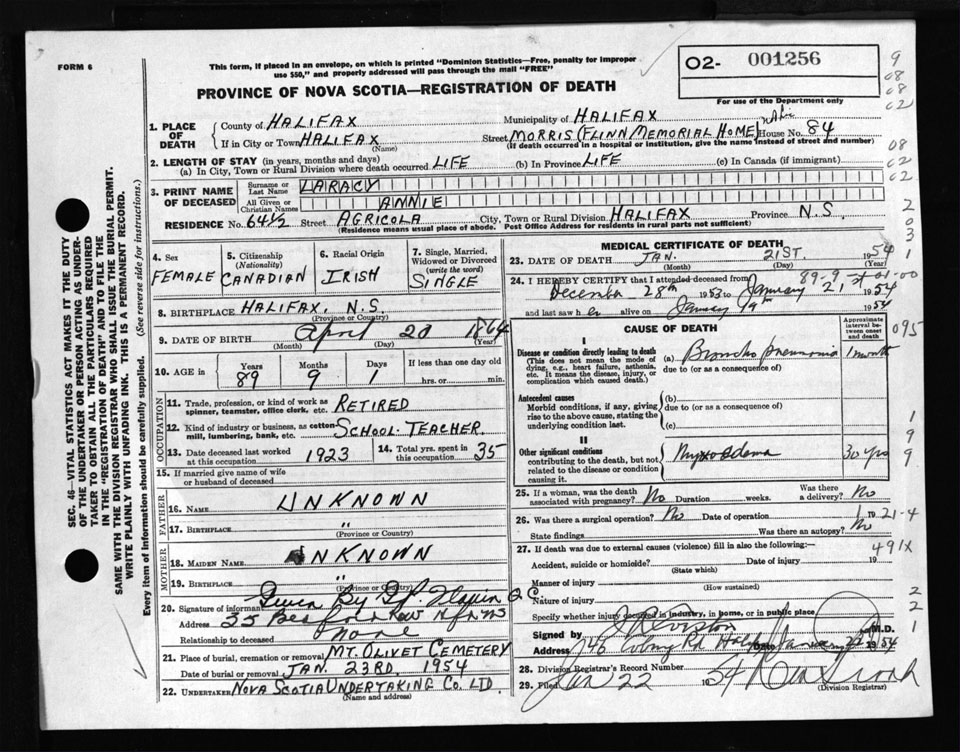 FORM 6
This form, if placed in an envelope, on which is printed "Dominion Statistics—Free, penalty for improper
use $50," and properly addressed will pass through the mail "FREE"
O2- 001256
For use of the Department only
PROVINCE OF NOVA SCOTIA—REGISTRATION OF DEATH
1. PLACE OF DEATH
County of HALIFAX Municipality of HALIFAX
If in City or Town HALIFAX (Name) Street MORRIS (FLINN MEMORIAL HOME) House No. 84
(If death occurred in a hospital or institution, give the name instead of street and number)
2. LENGTH OF STAY (in years, months and days)
(a) In City, Town or Rural Division where death occurred LIFE (b) In Province LIFE (c) In Canada (if immigrant)
3. PRINT NAME OF DECEASED
Surname or Last Name LARACY
All Given or Christian Names ANNIE
RESIDENCE No. 64½ Street AGRICOLA City, Town or Rural Division HALIFAX Province N.S.
(Residence means usual place of abode. Post Office Address for residents in rural parts not sufficient)
4. Sex FEMALE
5. Citizenship (Nationality) CANADIAN
6. Racial Origin IRISH
7. Single, Married, Widowed or Divorced (write the word) SINGLE
8. BIRTHPLACE HALIFAX, N.S.
(Province or Country)
9. DATE OF BIRTH April 20 1864
(Month) (Day) (Year)
10. AGE in Years 89 Months 9 Days 1 If less than one day hrs. or min.
OCCUPATION
11. Trade, profession, or kind of work as spinner, teamster, office clerk, etc. RETIRED
12. Kind of industry or business, as cotton mill, lumbering, bank, etc. SCHOOL-TEACHER
13. Date deceased last worked at this occupation 1923 14. Total yrs. spent in this occupation 35
15. If married give name of wife or husband of deceased
FATHER
16. NAME UNKNOWN
17. BIRTHPLACE "
(Province or Country)
MOTHER
18. MAIDEN NAME UNKNOWN
19. BIRTHPLACE "
(Province or Country)
20. Signature of informant Given By
Address 35 Bedford Row
Relationship to deceased None
21. Place of burial, cremation or removal MT. OLIVET CEMETERY
Date of burial, JAN. 23RD, 1954
22. UNDERTAKER NOVA SCOTIA UNDERTAKING CO. LTD.
(Name and Address)
MEDICAL CERTIFICATE OF DEATH
23. DATE OF DEATH JAN. 21ST 1954
(Month) (Day) (Year)
24. I HEREBY CERTIFY that I attended deceased from
December 28th 1953 to January 21st 1954
and last saw her alive on January 19th 1954
89-9-01-00
CAUSE OF DEATH
Approximate interval between onset and death
I
Disease or condition directly leading to death (a) Broncho pneumonia 1 month
(This does not mean the mode of dying, e.g., heart failure, asthenia, etc. It means the disease, injury, or complication which caused death.) due to (or as a consequence of)
Antecedent causes (b)
Morbid conditions, if any, giving rise to the above cause, stating the underlying condition last. due to (or as a consequence of)
(c)
II
Other significant conditions Myxoedema 30 yrs
contributing to the death, but not related to the disease or condition causing it.
25. If a woman, was the death associated with pregnancy? No Duration weeks. Was there a delivery? No
26. Was there a surgical operation? No Date of operation 19
21-4
State findings Was there an autopsy? No
27. If death was due to external causes (violence) fill in also the following:—
491X
Accident, suicide or homicide? (State which) Date of injury 19
Manner of injury (How sustained)
Nature of injury
Specify whether injury occurred in industry, in home, or in public place
Signed by M.D.
Address Date January 22 1954
28. Division Registrar's Record Number
29. Filed Jan 22 1954
(Division Registrar)
SEC. 46—VITAL STATISTICS ACT MAKES IT THE DUTY
OF THE UNDERTAKER OR PERSON ACTING AS UNDER-
TAKER TO OBTAIN ALL THE PARTICULARS REQUIRED
IN THE "REGISTRATION OF DEATH" AND TO FILE THE
SAME WITH THE DIVISION REGISTRAR WHO SHALL ISSUE THE BURIAL PERMIT.
WRITE PLAINLY WITH UNFADING INK. THIS IS A PERMANENT RECORD.
Every item of information should be carefully supplied. (See reverse side for instructions.)